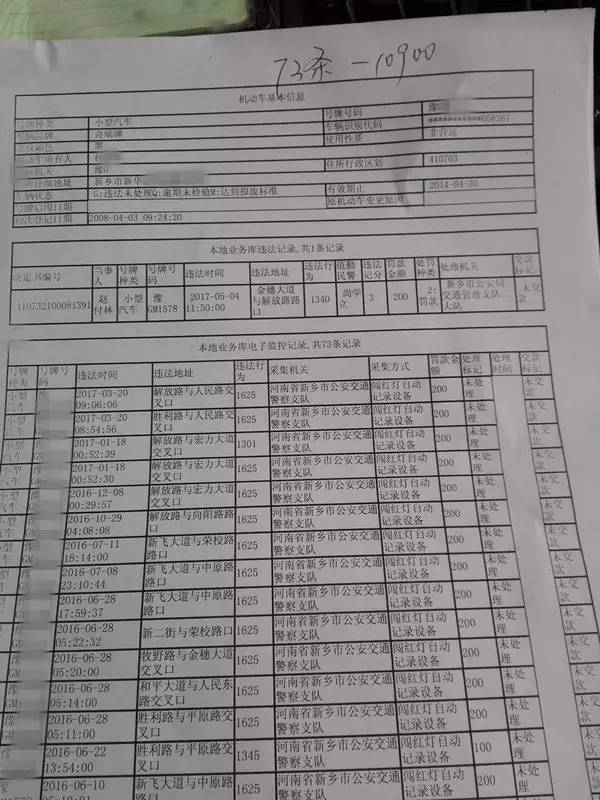 73条 -10900
机动车基本信息
号牌种类 小型汽车 号牌号码 豫G
车辆品牌 奇瑞牌 车辆识别代码 058267
色 黑 使用性质 非营运
机动车所有人 住所行政区划 410703
机关 豫G
详细地址 新乡市新华 有效期止 2014-04-30
车辆状态 G:违法未处理Q:逾期未检验M:达到报废标准 原机动车变更原因
号牌启用日期
初次登记日期 2008-04-03 09:24:20
本地业务库违法记录,共1条记录
决定书编号 当事人 号牌种类 号牌号码 违法时间 违法地址 违法行为 值勤民警 违法记分 罚款金额 处罚种类 处理机关 交款标记
110732100081391 赵付林 小型汽车 豫GM1578 2017-05-04 11:50:00 金穗大道与解放路路口 1340 尚学立 3 200 2:罚款 新乡市公安局交通管理支队 大队 未交款
本地业务库电子监控记录,共73条记录
号牌种类 号牌号码 违法时间 违法地址 违法行为 采集机关 采集方式 罚款金额 处理标记 处理时间 交款标记
小型汽车 豫 2017-03-20 09:06:06 解放路与人民路交叉口 1625 河南省新乡市公安交通警察支队 闯红灯自动记录设备 200 未处理 未交款
2017-03-20 08:54:56 胜利路与人民路交叉口 1625 河南省新乡市公安交通警察支队 闯红灯自动记录设备 200 未处理 未交款
2017-01-18 00:52:39 解放路与宏力大道交叉口 1301 河南省新乡市公安交通警察支队 闯红灯自动记录设备 200 未处理 未交款
2017-01-18 00:52:30 解放路与宏力大道交叉口 1625 河南省新乡市公安交通警察支队 闯红灯自动记录设备 200 未处理 未交款
小型汽车 豫 2016-12-08 00:29:57 解放路与宏力大道交叉口 1625 河南省新乡市公安交通警察支队 闯红灯自动记录设备 200 未处理 未交款
小型汽车 豫GM 2016-10-29 04:08:08 解放路与向阳路路口 1625 河南省新乡市公安交通警察支队 闯红灯自动记录设备 200 未处理 未交款
小型 豫GM 2016-07-11 18:14:00 新飞大道与荣校路路口 1625 河南省新乡市公安交通警察支队 闯红灯自动记录设备 200 未处理 未交款
2016-07-08 23:10:44 新飞大道与中原路路口 1625 河南省新乡市公安交通警察支队 闯红灯自动记录设备 200 未处理 未交款
2016-06-28 17:59:37 新飞大道与中原路路口 1625 河南省新乡市公安交通警察支队 闯红灯自动记录设备 200 未处理 未交款
2016-06-28 05:22:32 新二街与荣校路口 1625 河南省新乡市公安交通警察支队 闯红灯自动记录设备 200 未处理 未交款
2016-06-28 05:20:00 牧野路与金穗大道交叉口 1625 河南省新乡市公安交通警察支队 闯红灯自动记录设备 200 未处理 未交款
豫GM 2016-06-28 05:14:00 和平大道与人民东路交叉口 1625 河南省新乡市公安交通警察支队 闯红灯自动记录设备 200 未处理 未交款
豫GM 2016-06-28 05:11:00 胜利路与平原路交叉口 1625 河南省新乡市公安交通警察支队 闯红灯自动记录设备 200 未处理 未交款
豫GM 2016-06-22 13:54:00 胜利路与平原路交叉口 1345 河南省新乡市公安交通警察支队 闯红灯自动记录设备 100 未处理 未交款
豫 2016-06-10 新飞大道与中原路路口 1625 河南省新乡市公安交通警察支队 闯红灯自动记录设备 200 未处理 未交款